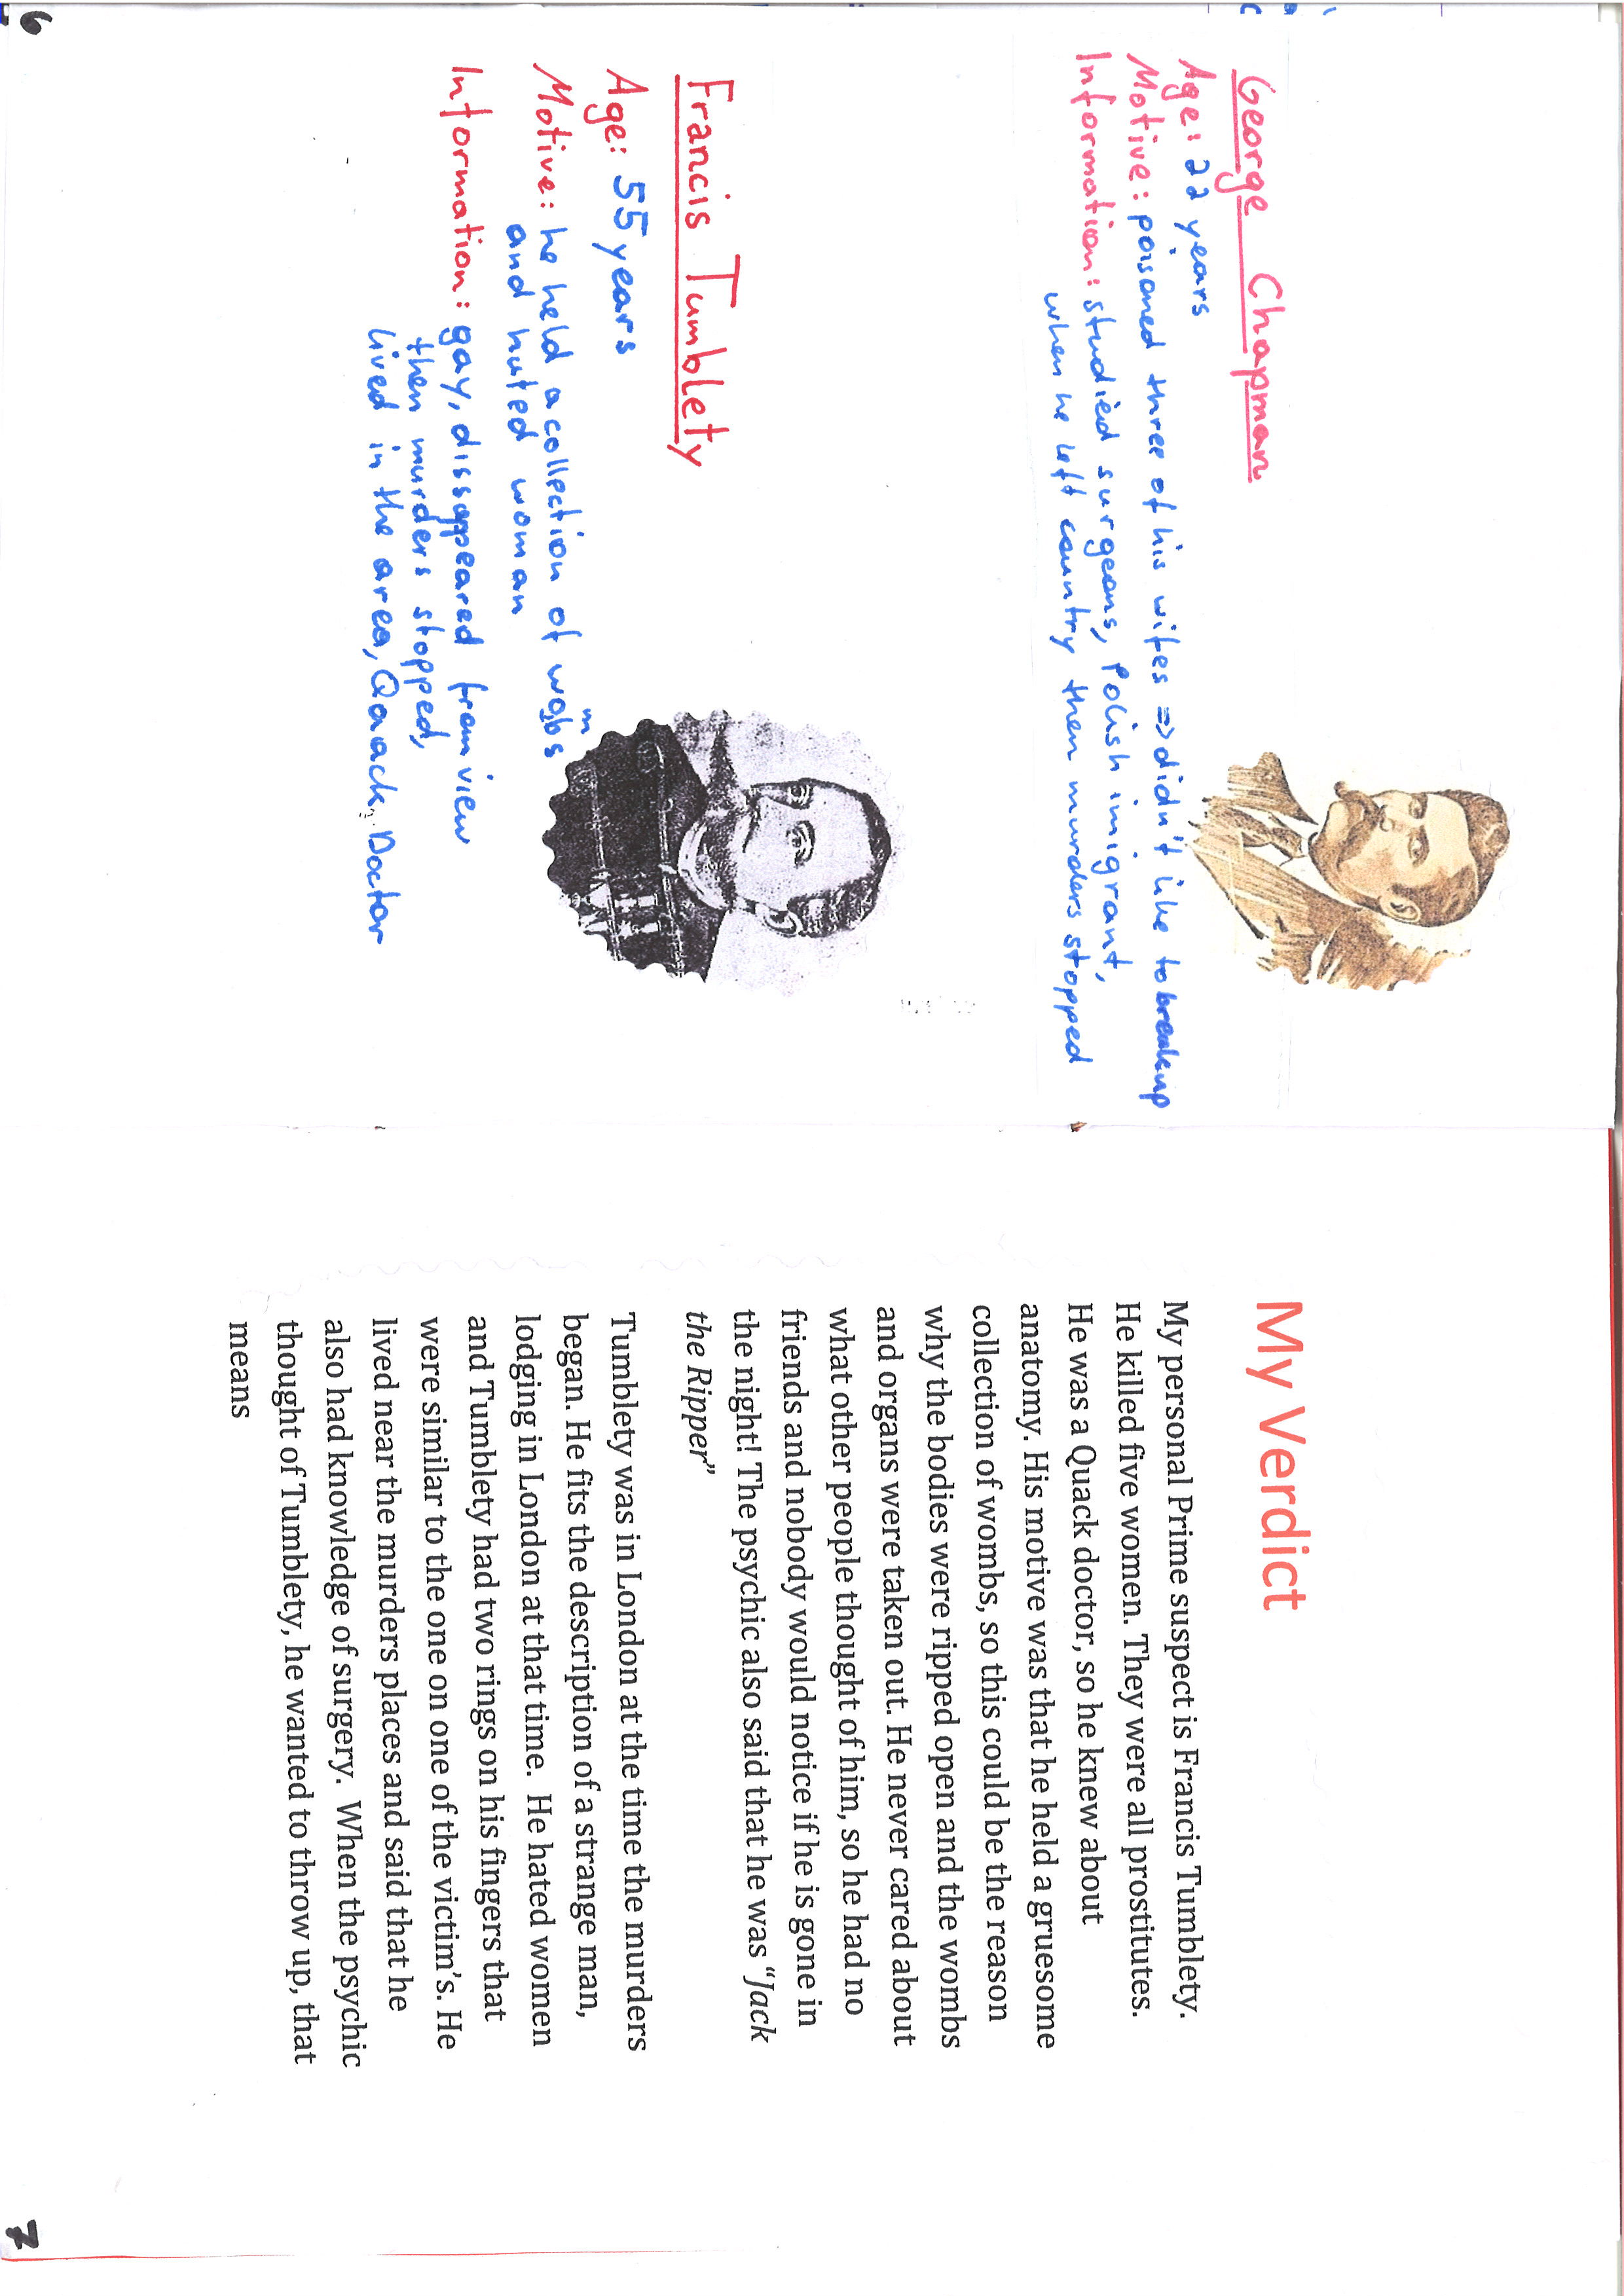 George Chapman
Age: 22 years
Motive: poisoned three of his wifes => didn't like to breakup
Information: studied surgeons, Polish imigrant,
when he left country then murders stopped
Francis Tumblety
Age: 55 years
Motive: he held a collection of wombs
and hated woman
Information: gay, dissappeared from view
then murders stopped,
lived in the area, Qaack Doctor
6
My Verdict
My personal Prime suspect is Francis Tumblety.
He killed five women. They were all prostitutes.
He was a Quack doctor, so he knew about
anatomy. His motive was that he held a gruesome
collection of wombs, so this could be the reason
why the bodies were ripped open and the wombs
and organs were taken out. He never cared about
what other people thought of him, so he had no
friends and nobody would notice if he is gone in
the night! The psychic also said that he was “Jack
the Ripper”
Tumblety was in London at the time the murders
began. He fits the description of a strange man,
lodging in London at that time. He hated women
and Tumblety had two rings on his fingers that
were similar to the one on one of the victim's. He
lived near the murders places and said that he
also had knowledge of surgery. When the psychic
thought of Tumblety, he wanted to throw up, that
means
7